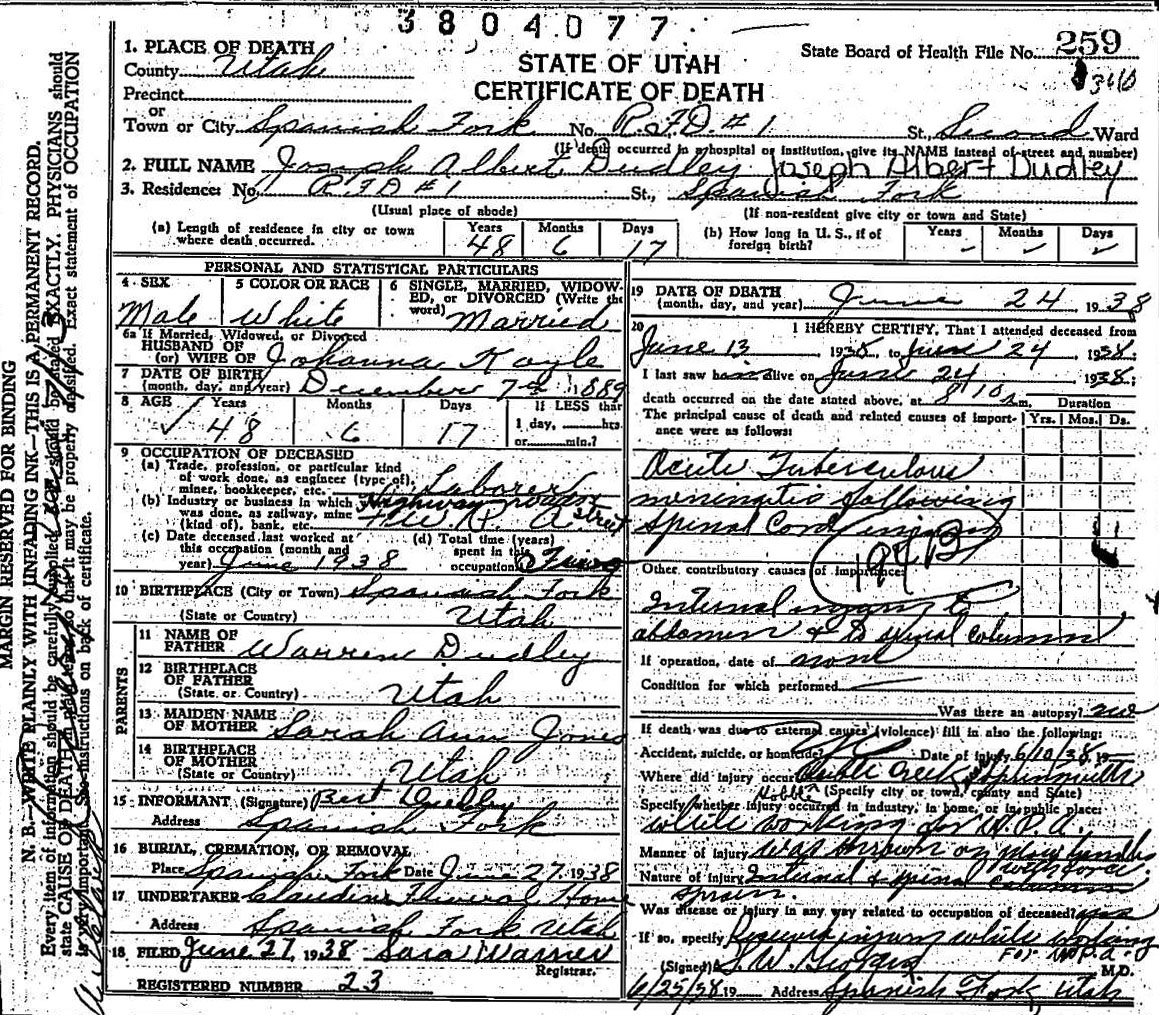 3804077
1. PLACE OF DEATH
County Utah
STATE OF UTAH
CERTIFICATE OF DEATH
State Board of Health File No. 259
340
Precinct
or
Town or City Spanish Fork No. R.F.D. # 1 St, Second Ward
(If death occurred in a hospital or institution, give its NAME instead of street and number)
2. FULL NAME Joseph Albert Dudley Joseph Albert Dudley
3. Residence: No. RFD # 1 St., Spanish Fork
(Usual place of abode) (If non-resident give city or town and State)
(a) Length of residence in city or town where death occurred. Years 48 Months 6 Days 17
(b) How long in U. S., if of foreign birth? Years - Months - Days
PERSONAL AND STATISTICAL PARTICULARS
4 SEX Male
5 COLOR OR RACE White
6 SINGLE, MARRIED, WIDOWED, or DIVORCED (Write the word) Married
6a If Married, Widowed, or Divorced
HUSBAND OF
(or) WIFE OF Johanna Koyle
7 DATE OF BIRTH
(month, day, and year) December 7th 1889
8 AGE Years 48 Months 6 Days 17
If LESS than
1 day, hrs.
or min.?
9 OCCUPATION OF DECEASED
(a) Trade, profession, or particular kind
of work done, as engineer (type of),
miner, bookkeeper, etc. Laborer
(b) Industry or business in which
was done, as railway, mine
(kind of), bank, etc. Highway street
W. P. A
(c) Date deceased last worked at
this occupation (month and
year) June 1938
(d) Total time (years)
spent in this
occupation
10 BIRTHPLACE (City or Town) Spanish Fork
(State or Country) Utah
PARENTS
11 NAME OF
FATHER Warren Dudley
12 BIRTHPLACE
OF FATHER
(State or Country) Utah
13 MAIDEN NAME
OF MOTHER Sarah Ann Jones
14 BIRTHPLACE
OF MOTHER
(State or Country) Utah
15 INFORMANT (Signature) Bert Dudley
Address Spanish Fork
16 BURIAL, CREMATION, OR REMOVAL
Place Spanish Fork Date June 27 1938
17 UNDERTAKER Claudin Funeral Home
Address Spanish Fork Utah
18 FILED June 27, 1938 Sara Warner
Registrar.
REGISTERED NUMBER 23
19 DATE OF DEATH
(month, day, and year) June 24 1938
20 I HEREBY CERTIFY, That I attended deceased from
June 13 1938, to June 24 1938;
I last saw him alive on June 24 1938;
death occurred on the date stated above, at 8 10 a.m. Duration
The principal cause of death and related causes of importance were as follows: Yrs. Mos. Ds.
Acute Tuberculous
meningitis following
Spinal Cord injury
Other contributory causes of importance:
Internal injury to
abdomen & to spinal column
If operation, date of none
Condition for which performed
Was there an autopsy? no
If death was due to external causes (violence) fill in also the following:
Accident, suicide, or homicide? Date of injury 6/10/38 19
Where did injury occur Creek, Springville
(Specify city or town, county and State)
Specify whether injury occurred in industry, in home, or in public place:
while working for W.P.A.
Manner of injury was thrown on plow handles
with force
Nature of injury Internal & spinal column
sprain
Was disease or injury in any way related to occupation of deceased? yes
If so, specify Received injury while working
For W.P.A.
(Signed) M.D.
6/25/38 19 Address Spanish Fork Utah
MARGIN RESERVED FOR BINDING
N. B.—WRITE PLAINLY WITH UNFADING INK—THIS IS A PERMANENT RECORD.
Every item of information should be carefully supplied. AGE should be stated EXACTLY. PHYSICIANS should
state CAUSE OF DEATH in plain terms, so that it may be properly classified. Exact statement of OCCUPATION
is very important. See instructions on back of certificate.